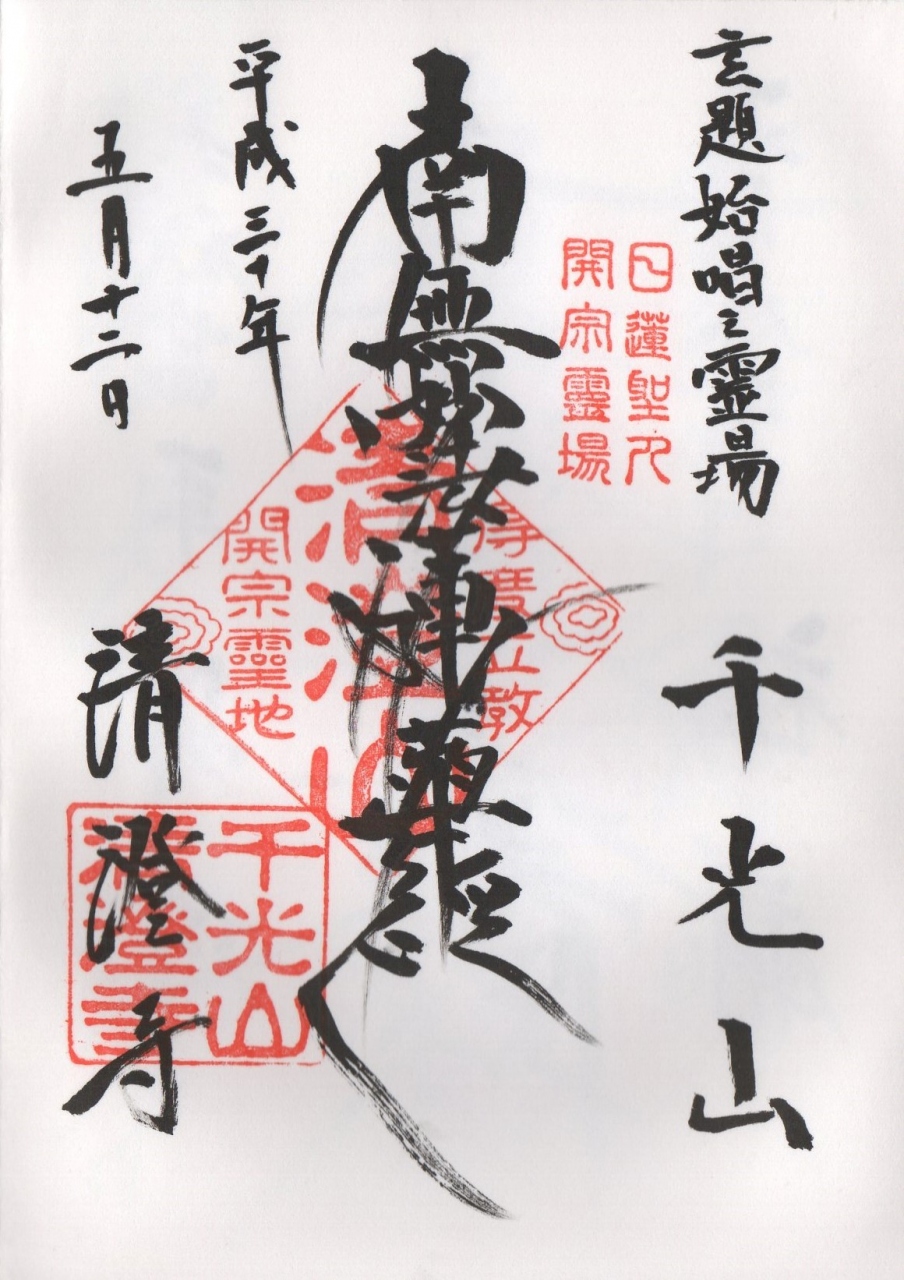 玄題始唱之靈場
千光山
日蓮聖人
開宗靈場
南無妙法蓮華經
得度立教
清澄山
開宗靈地
平成三十年
五月十二日
清澄寺
千光山
清澄寺